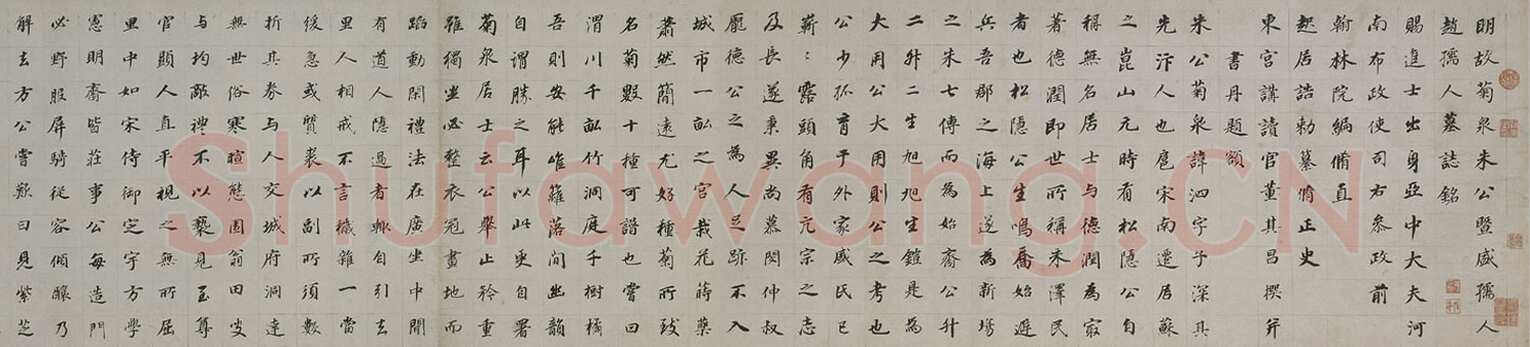 明故菊泉朱公暨盛孺人
趙孺人墓誌銘
賜進士出身亞中大夫河
南布政使司右參政前
翰林院編脩直
起居誥勑纂脩正史
東宮講讀官董其昌撰并
書丹題額
朱公菊泉諱泗字子深其
先汴人也扈宋南遷居蘇
之崑山元時有松隱公自
稱無名居士与德潤為寂
著德潤即世所稱朱澤民
者也松隱公生鳴喬始避
兵吾郡之海上遂為新場
之朱七傳而為始齋公升
二升二生旭旭生鎧是為
大用公大用則公之考也
公少孤育于外家氏已
嶄:露頭角有亢宗之志
及長遂秉異尚慕閔仲叔
龐德公之為人足跡不入
城市一畝之宮栽花蒔藥
蕭然簡遠尤好種菊所致
名菊數十種可譜也嘗曰
渭川千畝竹洞庭千樹橘
吾則安能唯籬落間幽韻
自謂勝之耳以此更自署
菊泉居士云公舉止矜重
雖獨坐必整衣冠畫地而
蹈動閑禮法在廣坐中聞
有道人隱過者輒自引去
里人相戒不言穢雜一當
緩急或質裘以副所須數
折其券与人交城府洞達
無世俗寒暄態園翁田叟
与均敵禮不以褻見至尊
官顯人直平視之無所屈
里中如宋侍御定宇方學
憲明齋皆莊事公每造門
必野服屏騎從容傾釀乃
解去方公嘗歎曰見紫芝
Shufawang.CN